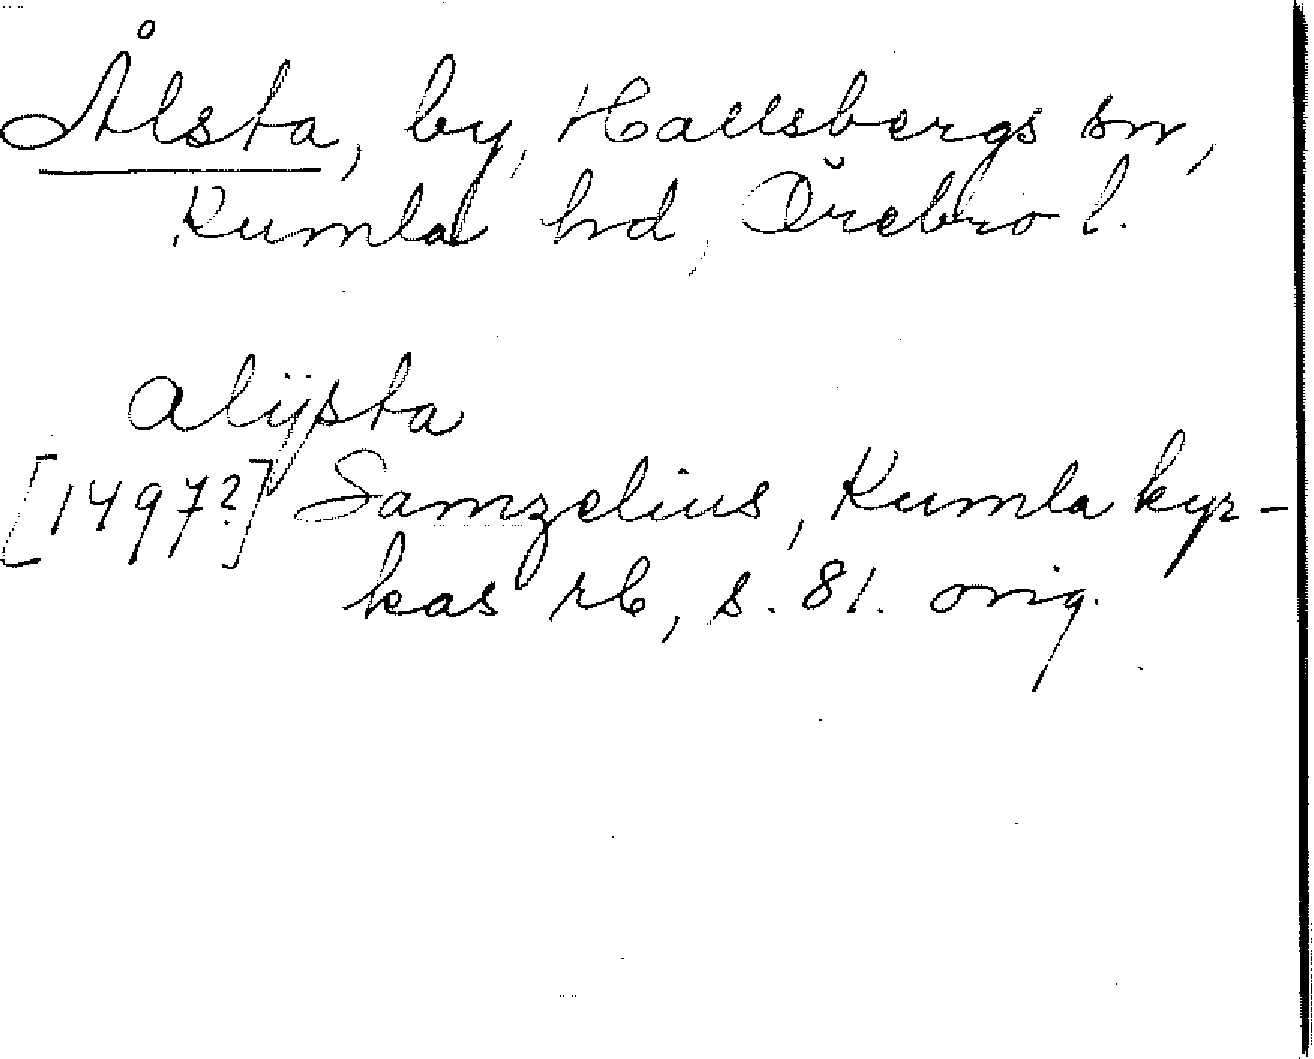 Ålsta, by, Hallsbergs sn,
Kumla hd, Örebro l.
alÿsta
[1497?] Samzelius, Kumla kyr-
kas rb, s. 81. orig.